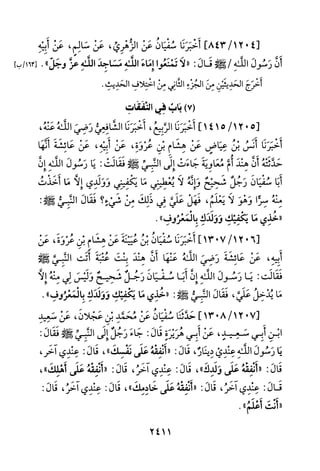 [٨٤٣/١٢٠٤] أَخْبَرَنَا سُفْيَانُ عَنْ الزُّهْرِيِّ، عَنْ سَالِمٍ، عَنْ أَبِيْهِ
أَنَّ رَسُولَ اللَّـهِ/ ﷺ قَـالَ: «لَا تَمْنَعُوا إِمَاءَ اللَّـهِ مَسَاجِدَ اللَّـهِ عَزَّ وجَلَّ».
[١٦٣/ب]
خَرَّجَ الحَدِيثَيْنِ مِنَ الجُزْءِ الثَّانِي مِنْ اخْتِلَافِ الحَدِيثِ.
(٧) بَابٌ فِي النَّفَقَاتِ
[١٤١٥/١٢٠٥] أَخْبَرَنَا الرَّبِيعُ، أَخْبَرَنَا الشَّافِعِيُّ رَضِيَ اللَّـهُ عَنْهُ،
أَخْبَرَنَا أَنَسُ بْنُ عِيَاضٍ عَنْ هِشَامِ بْنِ عُرْوَةَ، عَنْ أَبِيْهِ، عَنْ عَائِشَةَ أَنَّهَا
حَدَّثَتْهُ أَنَّ هِنْدَ أُمَّ مُعَاوِيَةَ جَاءَتْ إِلَى النَّبِيِّ ﷺ فَقَالَتْ: يَا رَسُولَ اللَّـهِ إِنَّ
أَبَا سُفْيَانَ رَجُلٌ شَحِيْحٌ وَإِنَّهُ لَا يُعْطِيْنِي مَا يَكْفِيْنِي وَوَلَدِي إِلَّا مَا أَخَذْتُ
مِنْهُ سِرًّا وَهُوَ لَا يَعْلَمُ، فَهَلْ عَلَيَّ فِي ذَلِكَ مِنْ شَيْءٍ؟ فَقَالَ النَّبِيُّ ﷺ:
«خُذِي مَا يَكْفِيْكِ وَوَلَدَكِ بِالْمَعْرُوفِ».
[١٣٠٧/١٢٠٦] أَخْبَرَنَا سُفْيَانُ بْنُ عُيَيْنَةَ عَنْ هِشَامِ بْنِ عُرْوَةَ، عَنْ
أَبِيهِ، عَنْ عَائِشَةَ رَضِيَ اللَّـهُ عَنْهَا أَنَّ هِنْدَ بِنْتَ عُتْبَةَ أَتَتِ النَّبِيَّ ﷺ
فَقَالَتْ: يَـا رَسُـولَ اللَّـهِ إِنَّ أَبَـا سُـفْـيَـانَ رَجُـلٌ شَـحِـيـحٌ وَلَيْسَ لِي مِنْهُ إِلَّا
مَا يُدْخِلُ عَلَيَّ، فَقَالَ النَّبِيُّ ﷺ: «خُذِي مَا يَكْفِيْكِ وَوَلَدَكِ بِالْمَعْرُوفِ».
[١٣٠٨/١٢٠٧] حَدَّثَنَا سُفْيَانُ عَنْ مُحَمَّدِ بْنِ عَجْلَانَ، عَنْ سَعِيدِ
ابْـنِ أَبِـي سَـعِـيـدٍ، عَـنْ أَبِـي هُرَيْرَةَ قَالَ: جَاءَ رَجُلٌ إِلَى النَّبِيِّ ﷺ فَقَالَ:
يَا رَسُولَ اللَّـهِ عِنْدِي دِينَارٌ، قَالَ: «أَنْفِقْهُ عَلَى نَفْسِكَ»، قَالَ: عِنْدِي آخَر،
قَالَ: «أَنْفِقْهُ عَلَى وَلَدِكَ»، قَالَ: عِنْدِي آخَرُ، قَالَ: «أَنْفِقْهُ عَلَى أَهْلِكَ»،
قَـالَ: عِنْدِي آخَرُ، قَالَ: «أَنْفِقْهُ عَلَى خَادِمِكَ»، قَالَ: عِنْدِي آخَرُ، قَالَ:
«أَنْتَ أَعْلَمُ».
٢٤١١